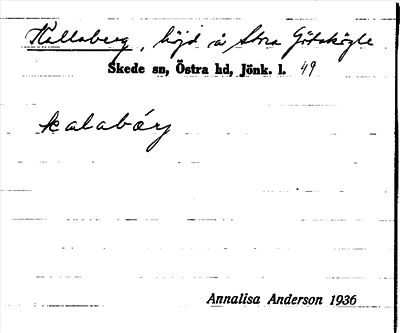 Kallaberg, höjd å Stora Götaskögle
Skede sn, Östra hd, Jönk. l. 49
kalabärj
Annalisa Anderson 1936